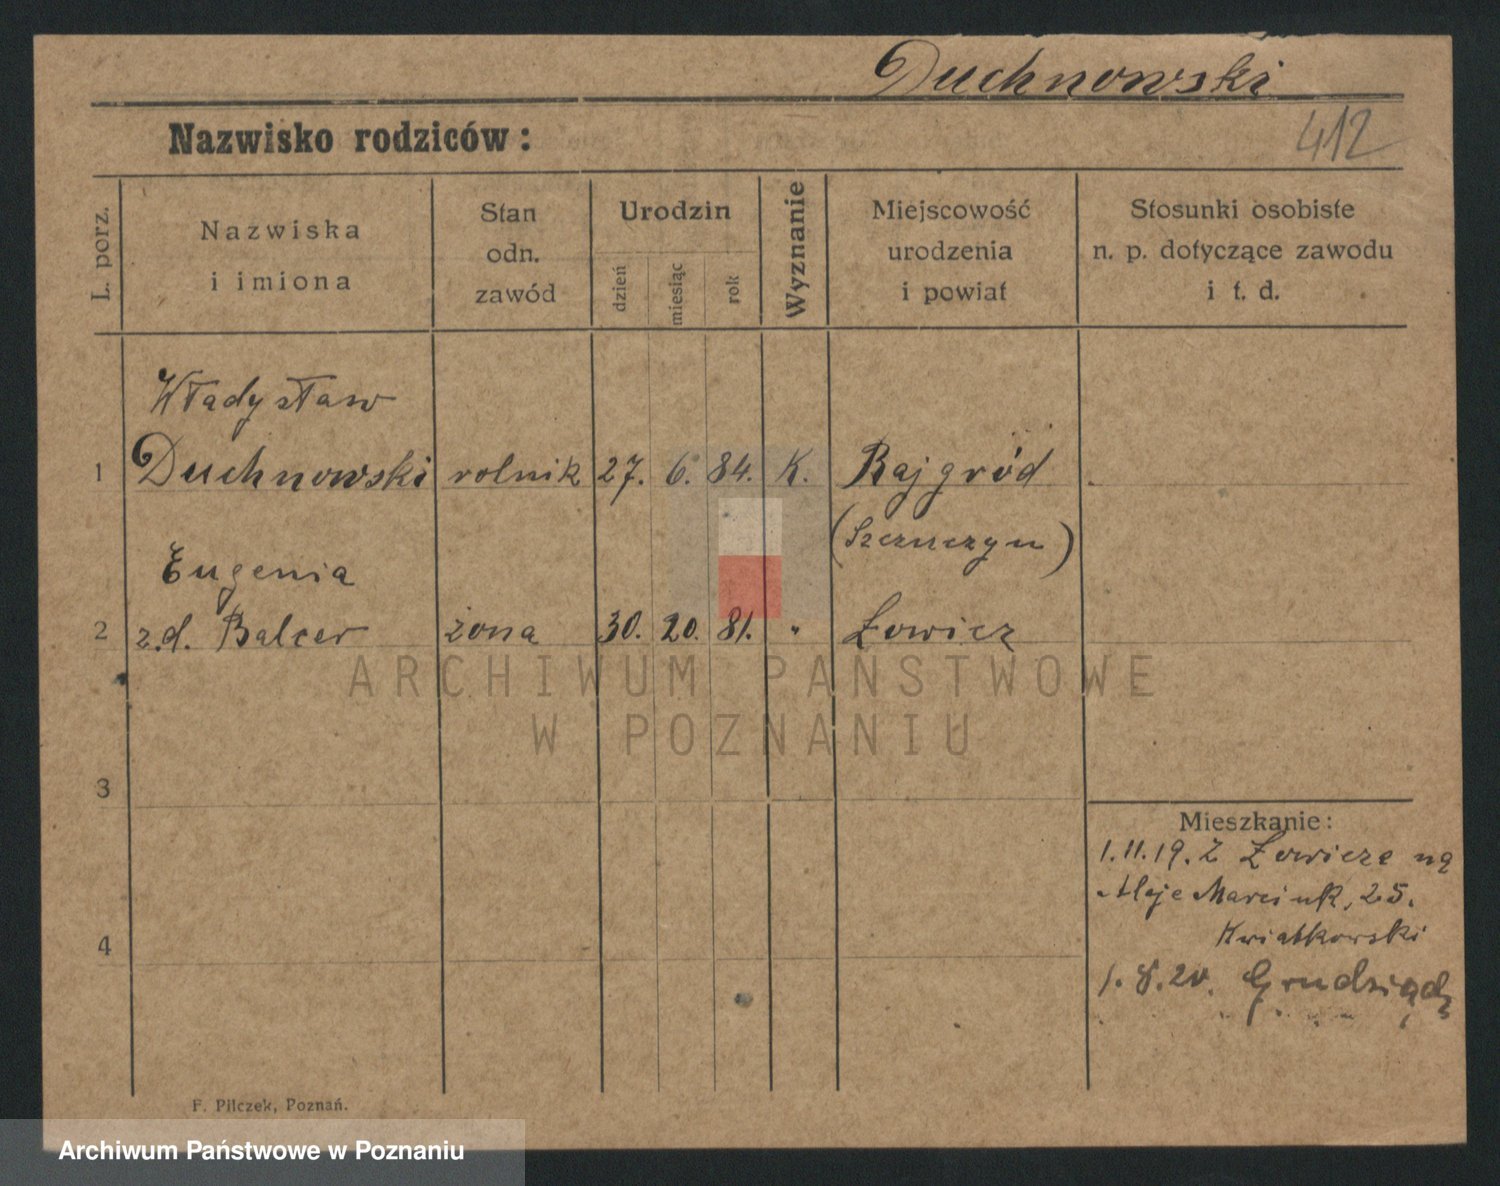 Duchnowski
412
Nazwisko rodziców:
L. porz.
Nazwiska
i imiona
Stan
odn.
zawód
Urodzin
dzień
miesiąc
rok
Wyznanie
Miejscowość
urodzenia
i powiat
Stosunki osobiste
n. p. dotyczące zawodu
i t. d.
Władysław
1 Duchnowski rolnik 27. 6. 84. K. Rajgród
(Szczuczyn)
Eugenia
2 z.d. Balcer żona 30. 20. 81. " Łowicz
ARCHIWUM PAŃSTWOWE
W POZNANIU
3
Mieszkanie:
1.11.19. z Łowicza na
Aleje Marcink. 25.
Kwiatkowski
4
1.8.20. Grudziądz
F. Pilczek, Poznań.
Archiwum Państwowe w Poznaniu